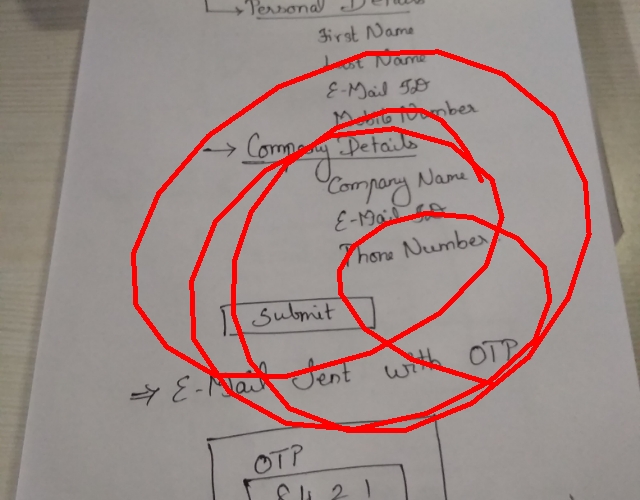 → Personal Details
First Name
Last Name
E-Mail ID
Mobile Number
→ Company Details
Company Name
E-Mail ID
Phone Number
Submit
⇒ E-Mail Sent with OTP
OTP
8 4 2 1